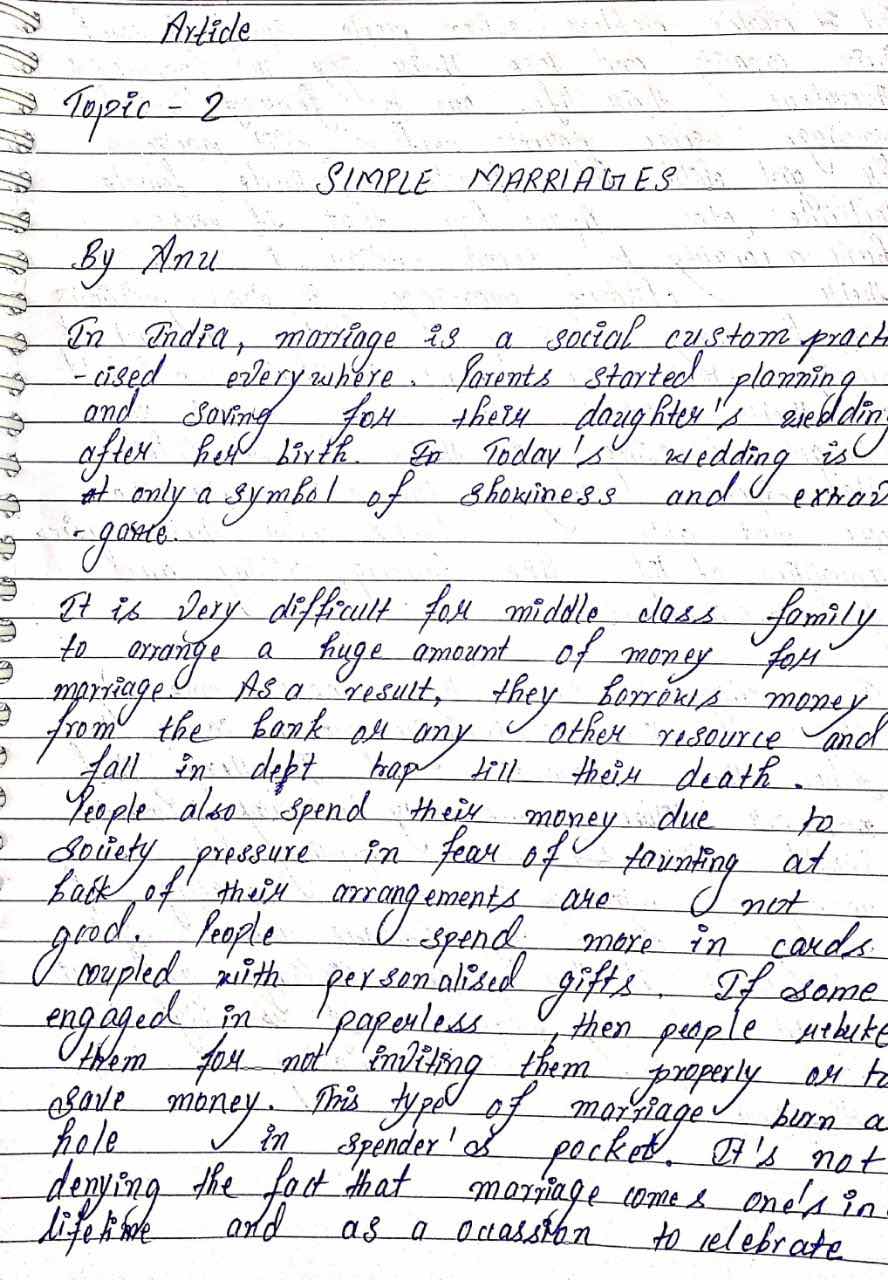 Article
Topic - 2
SIMPLE MARRIAGES
By Anu
In India, marriage is a social custom pract
-cised everywhere. Parents started planning
and saving for their daughter's wedding
after her birth. In Today's wedding is
only a symbol of showiness and extrav
-gance.
It is very difficult for middle class family
to arrange a huge amount of money for
marriage. As a result, they borrows money
from the bank or any other resource and
fall in dept trap till their death.
People also spend their money due to
society pressure in fear of taunting at
back of their arrangements are not
good. People spend more in cards
coupled with personalised gifts. If some
engaged in paperless, then people rebuke
them for not inviting them properly or to
save money. This type of marriage burn a
hole in spender's pocket. It's not
denying the fact that marriage comes one's in
lifetime and as a occassion to celebrate